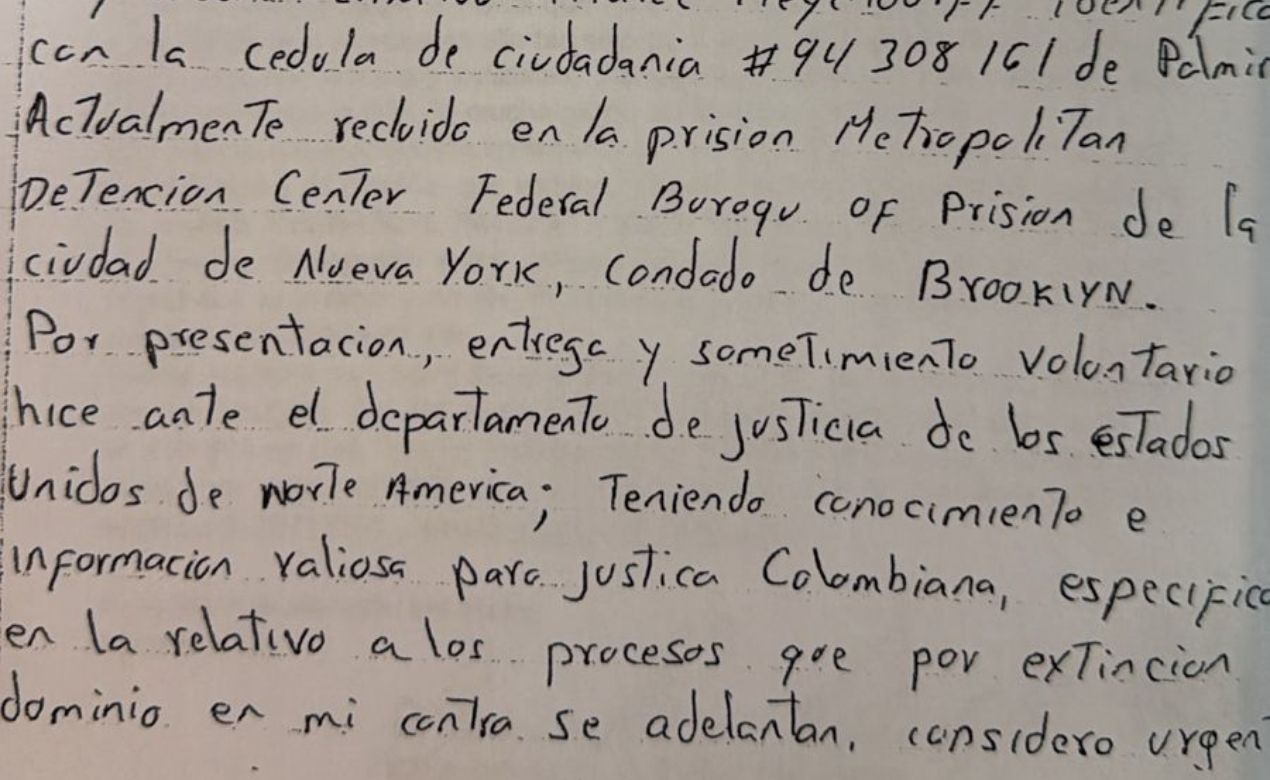 con la cedula de ciudadania #94 308 161 de Palmir
Actualmente recluido en la prision Metropolitan
Detencion Center Federal Buroqu of Prision de la
ciudad de Nueva York, condado de Brooklyn.
Por presentacion, entrega y sometimiento voluntario
hice ante el departamento de justicia de los estados
Unidos de Norte America; Teniendo conocimiento e
informacion valiosa para justica Colombiana, especifica
en la relativo a los procesos que por extincion
dominio en mi contra se adelantan, considero urgen